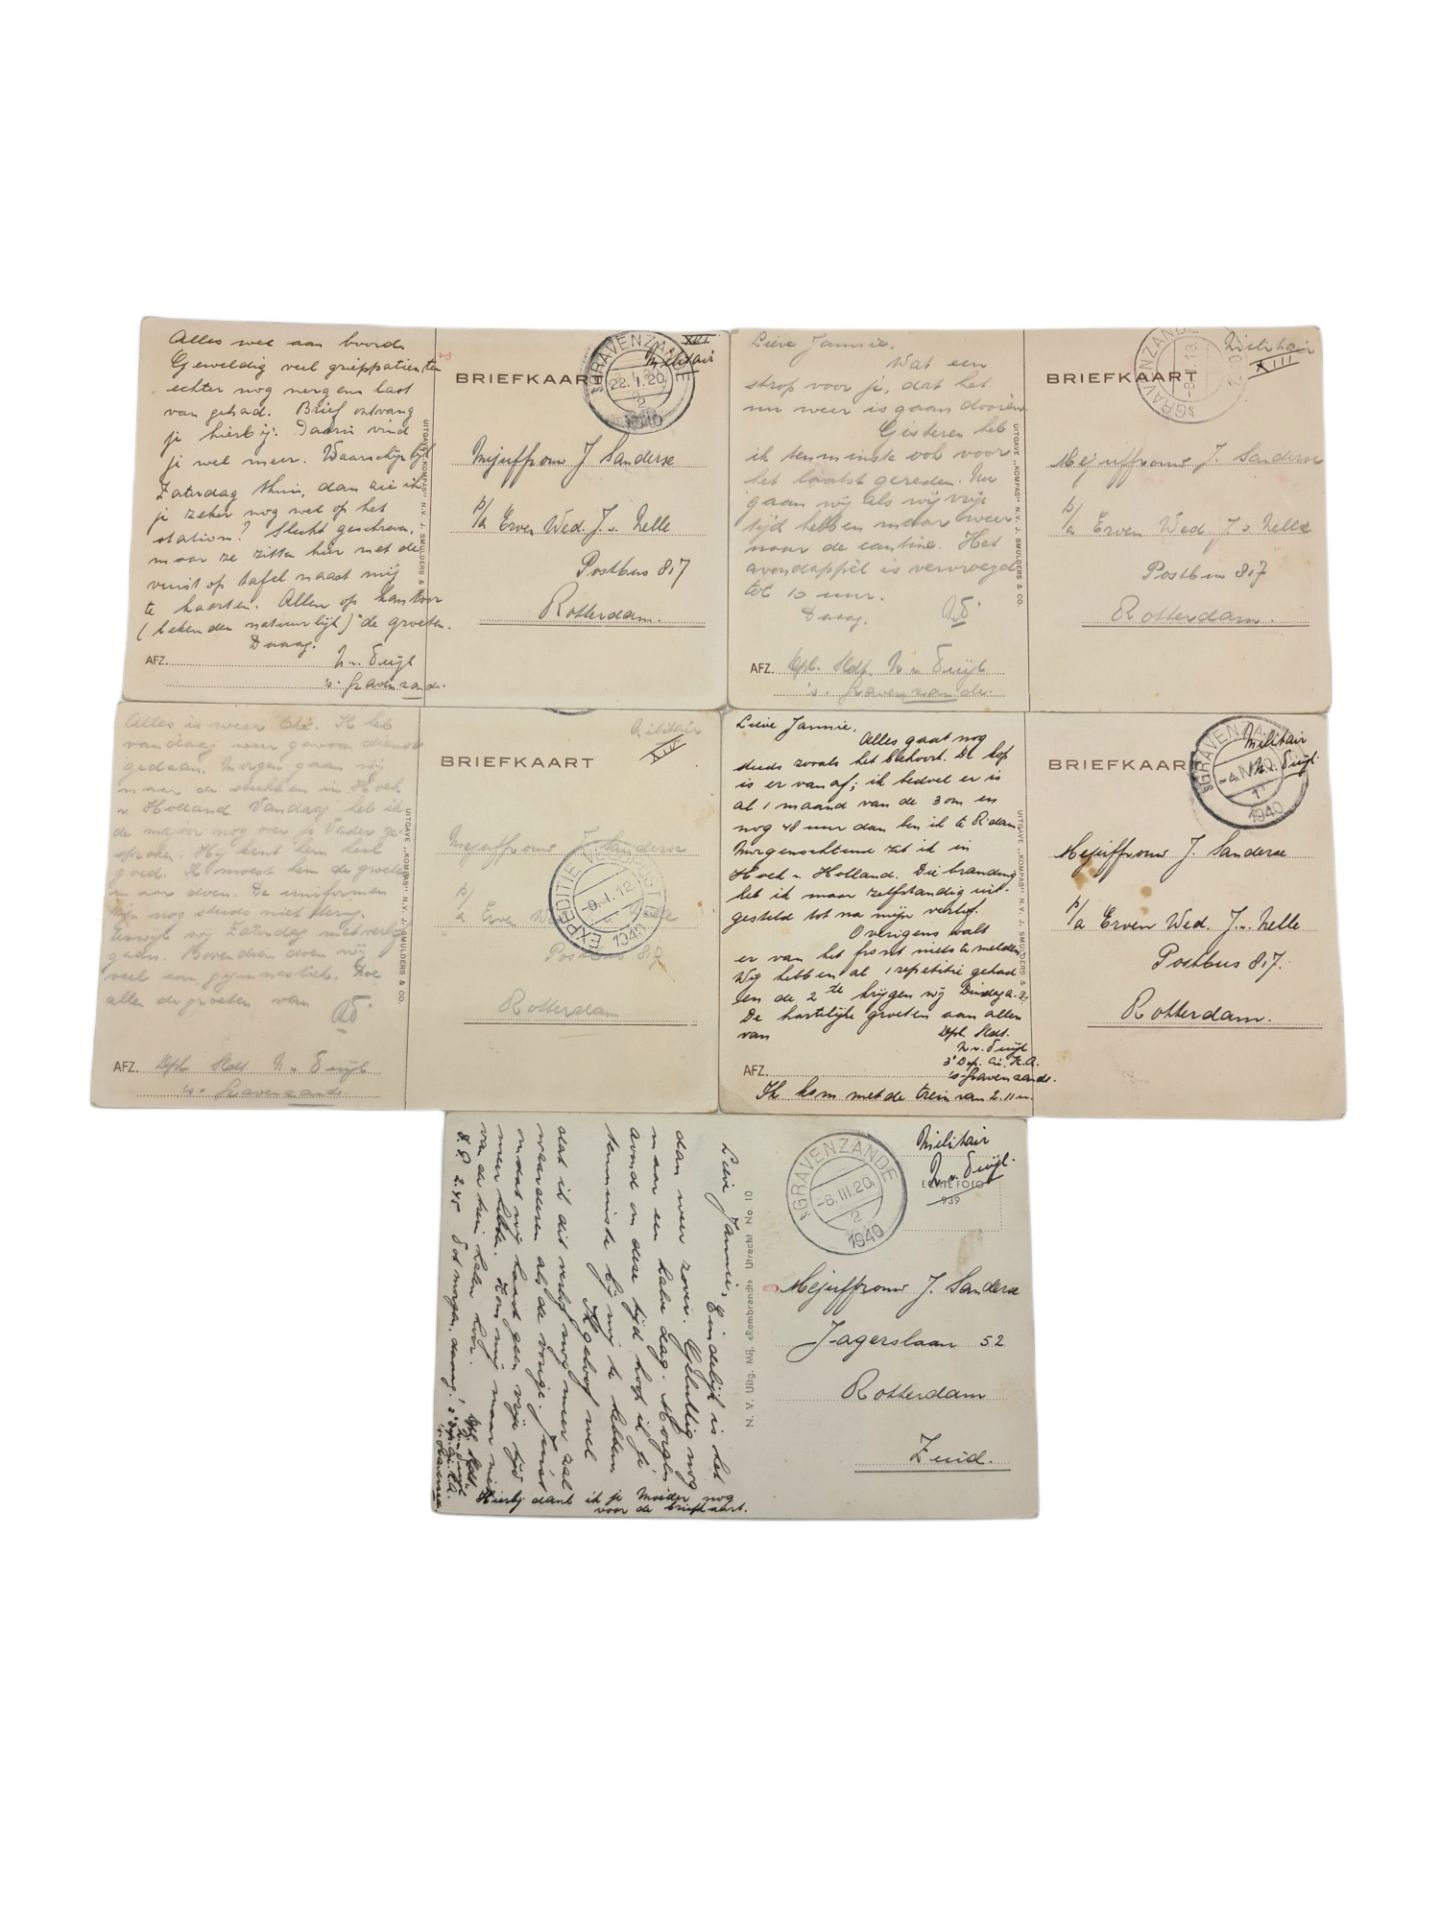 Alles wel aan boord.
Geweldig veel grieppatienten
echter nog nergens last
van gehad. Brief ontvang
je hierbij. Daarin vind
je wel meer. Waarschijnlijk
Zaterdag thuis, dan zie ik
je zeker nog wel op het
station? Slecht geschreven,
maar ze zitten hier met de
vuist op tafel naast mij
te kaarten. Allen op kantoor
(bekenden natuurlijk) de groeten.
Daaag.
AFZ. N. v. Suijl
's-Gravenzande.
UITGAVE „KOMPAS" N.V. J. SMULDERS & CO.
BRIEFKAART
XIII
Militair
's GRAVENZANDE
22.I.20.
2
1940
Mejuffrouw J. Sanderse
p/a Erven Wed. J. v. Nelle
Postbus 817
Rotterdam.
Lieve Jannie,
Wat een
strop voor je, dat het
nu weer is gaan dooien
Gisteren heb
ik tenminste ook voor
het laatst gereden. Nu
gaan wij als wij vrije
tijd hebben maar weer
naar de cantine. Het
avondappèl is vervroegd
tot 10 uur.
Daaag.
AFZ. Dpl. Sldt. N. v. Suijl
's-Gravenzande.
UITGAVE „KOMPAS" N.V. J. SMULDERS & CO.
BRIEFKAART
Militair
XIII
's GRAVENZANDE
Mejuffrouw J. Sanderse
p/a Erven Wed. J. v. Nelle
Postbus 817
Rotterdam.
Alles is weer Ik heb
vandaag weer gewoon dienst
gedaan. Morgen gaan wij
naar de in Hoek
v. Holland. Vandaag heb ik
de majoor nog over je Vader ge-
sproken. Hij kent hem heel
goed. Ik moest hem de groeten
maar doen. De uniformen
zijn nog steeds niet terug.
Terwijl wij Zaterdag met verlof
gaan. Bovendien doen wij
veel aan gymnastiek. Doe
allen de groeten van
AFZ. Dpl. Sldt N. v. Suijl
's-Gravenzande
UITGAVE „KOMPAS" N.V. J. SMULDERS & CO.
BRIEFKAART
Militair
XIII
EXPEDITIE
-9.I.12
1940
Mejuffrouw J. Sanderse
p/a Erven
Postbus 817
Rotterdam
Lieve Jannie,
Alles gaat nog
steeds zooals het behoort. De kop
is er van af; ik bedoel er is
al 1 maand van de 3 om en
nog 48 uur dan ben ik te R'dam
Morgenochtend zit ik in
Hoek v. Holland. Die branding
heb ik maar zelfstandig uit-
gesteld tot na mijn verlof.
Overigens valt
er van het front niets te melden
Wij hebben al 1 repetitie gehad
en de 2de krijgen wij Dinsdag a.s.
De hartelijke groeten aan allen
van Dpl. Sldt.
N. v. Suijl
3e Dep. Cie. K.A.
's-Gravenzande.
AFZ.
Ik kom met de trein van 2.11 u.
UITGAVE „KOMPAS" N.V. J. SMULDERS & CO.
BRIEFKAART
Militair
N. v. Suijl.
's GRAVENZANDE
1940
Mejuffrouw J. Sanderse
p/a Erven Wed. J. v. Nelle
Postbus 817.
Rotterdam.
Lieve Jannie, Eindelijk is het
dan weer zover. Gelukkig nog
maar een halve dag. Morgen
avond om deze tijd hoop ik je
tenminste bij mij te hebben
Ik geloof wel
dat ik dit verlof nog meer zal
waarderen als de vorige. Juist
omdat wij haast geen vrije tijd
meer hebben. Kom mij maar niet
van de trein halen hoor.
Tot morgen, daaag.
Dpl. Sldt.
N. v. Suijl
3e Dep. Cie. K.A.
's-Gravenzande
Hierbij dank ik je Moeder nog
voor de briefkaart.
N. V. Uitg. Mij. „Rembrandt" Utrecht No 10
's GRAVENZANDE
-8.III.20.
2
1940
Militair
N. v. Suijl.
ECHTE FOTO
939
Mejuffrouw J. Sanderse
Jagerslaan 52
Rotterdam
Zuid.